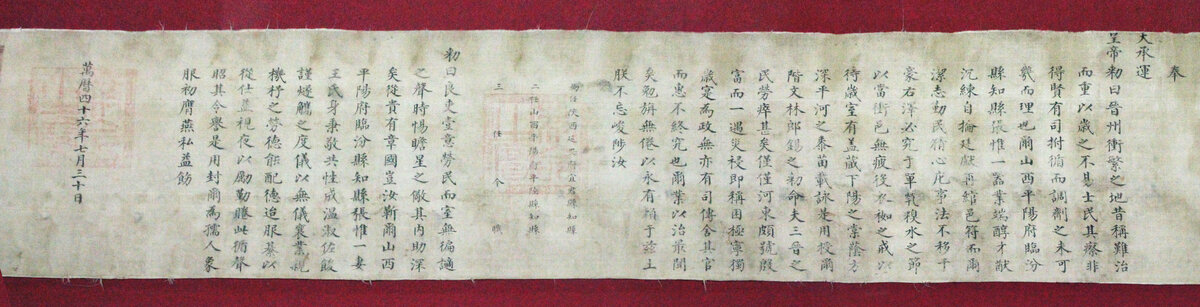 奉
天承運
皇帝勅曰晉州衝繁之地昔稱難治
而重以歲之不易士民其瘵非
得賢有司拊循而調劑之未可
幾而理也爾山西平陽府臨汾
縣知縣張惟一器業端醇才猷
沉練自掄廷獻再綰邑符而爾
潔志勤民猜心庀事法不移于
豪右澤必究于單
以當衝邑無疲役衣袽之戒以
待歲室有蓋藏下陽之棠蔭方
深平河之泰苗載詠是用授爾
階文林郎錫之勅命夫三晉之
民勞瘁甚矣僅僅河東頗號殷
富而一遇災祲即稱困極寧獨
歲寔為政無亦有司傳舍其官
而惠不終究也爾業以治最聞
矣勉旃無倦以永有賴于茲土
朕不忘峻陟汝
初任陝西延安府宜君縣知縣
二任山西平陽府臨汾縣知縣
三任今職
勅曰良吏壹意勞民而室無徧讁
之聲時惕瞻星之儆其內助深
矣從貴有章國豈汝靳爾山西
平陽府臨汾縣知縣張惟一妻
王氏身秉敬共性成溫淑佐餕
謹燧觿之度儀以無儀襄業親
機杼之勞德能配德迨服綦以
從仕蓋視夜以勵勤賑此循聲
昭其令譽是用封爾為孺人象
服初膺燕私益飭
萬曆四十六年七月三十日